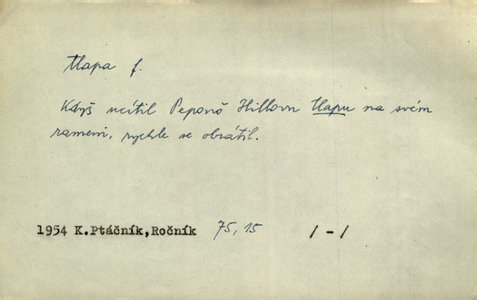 tlapa f.
Když ucítil Peponě Hillovu tlapu na svém
rameni, rychle se obrátil.
1954 K.Ptáčník,Ročník 75,15 /-/